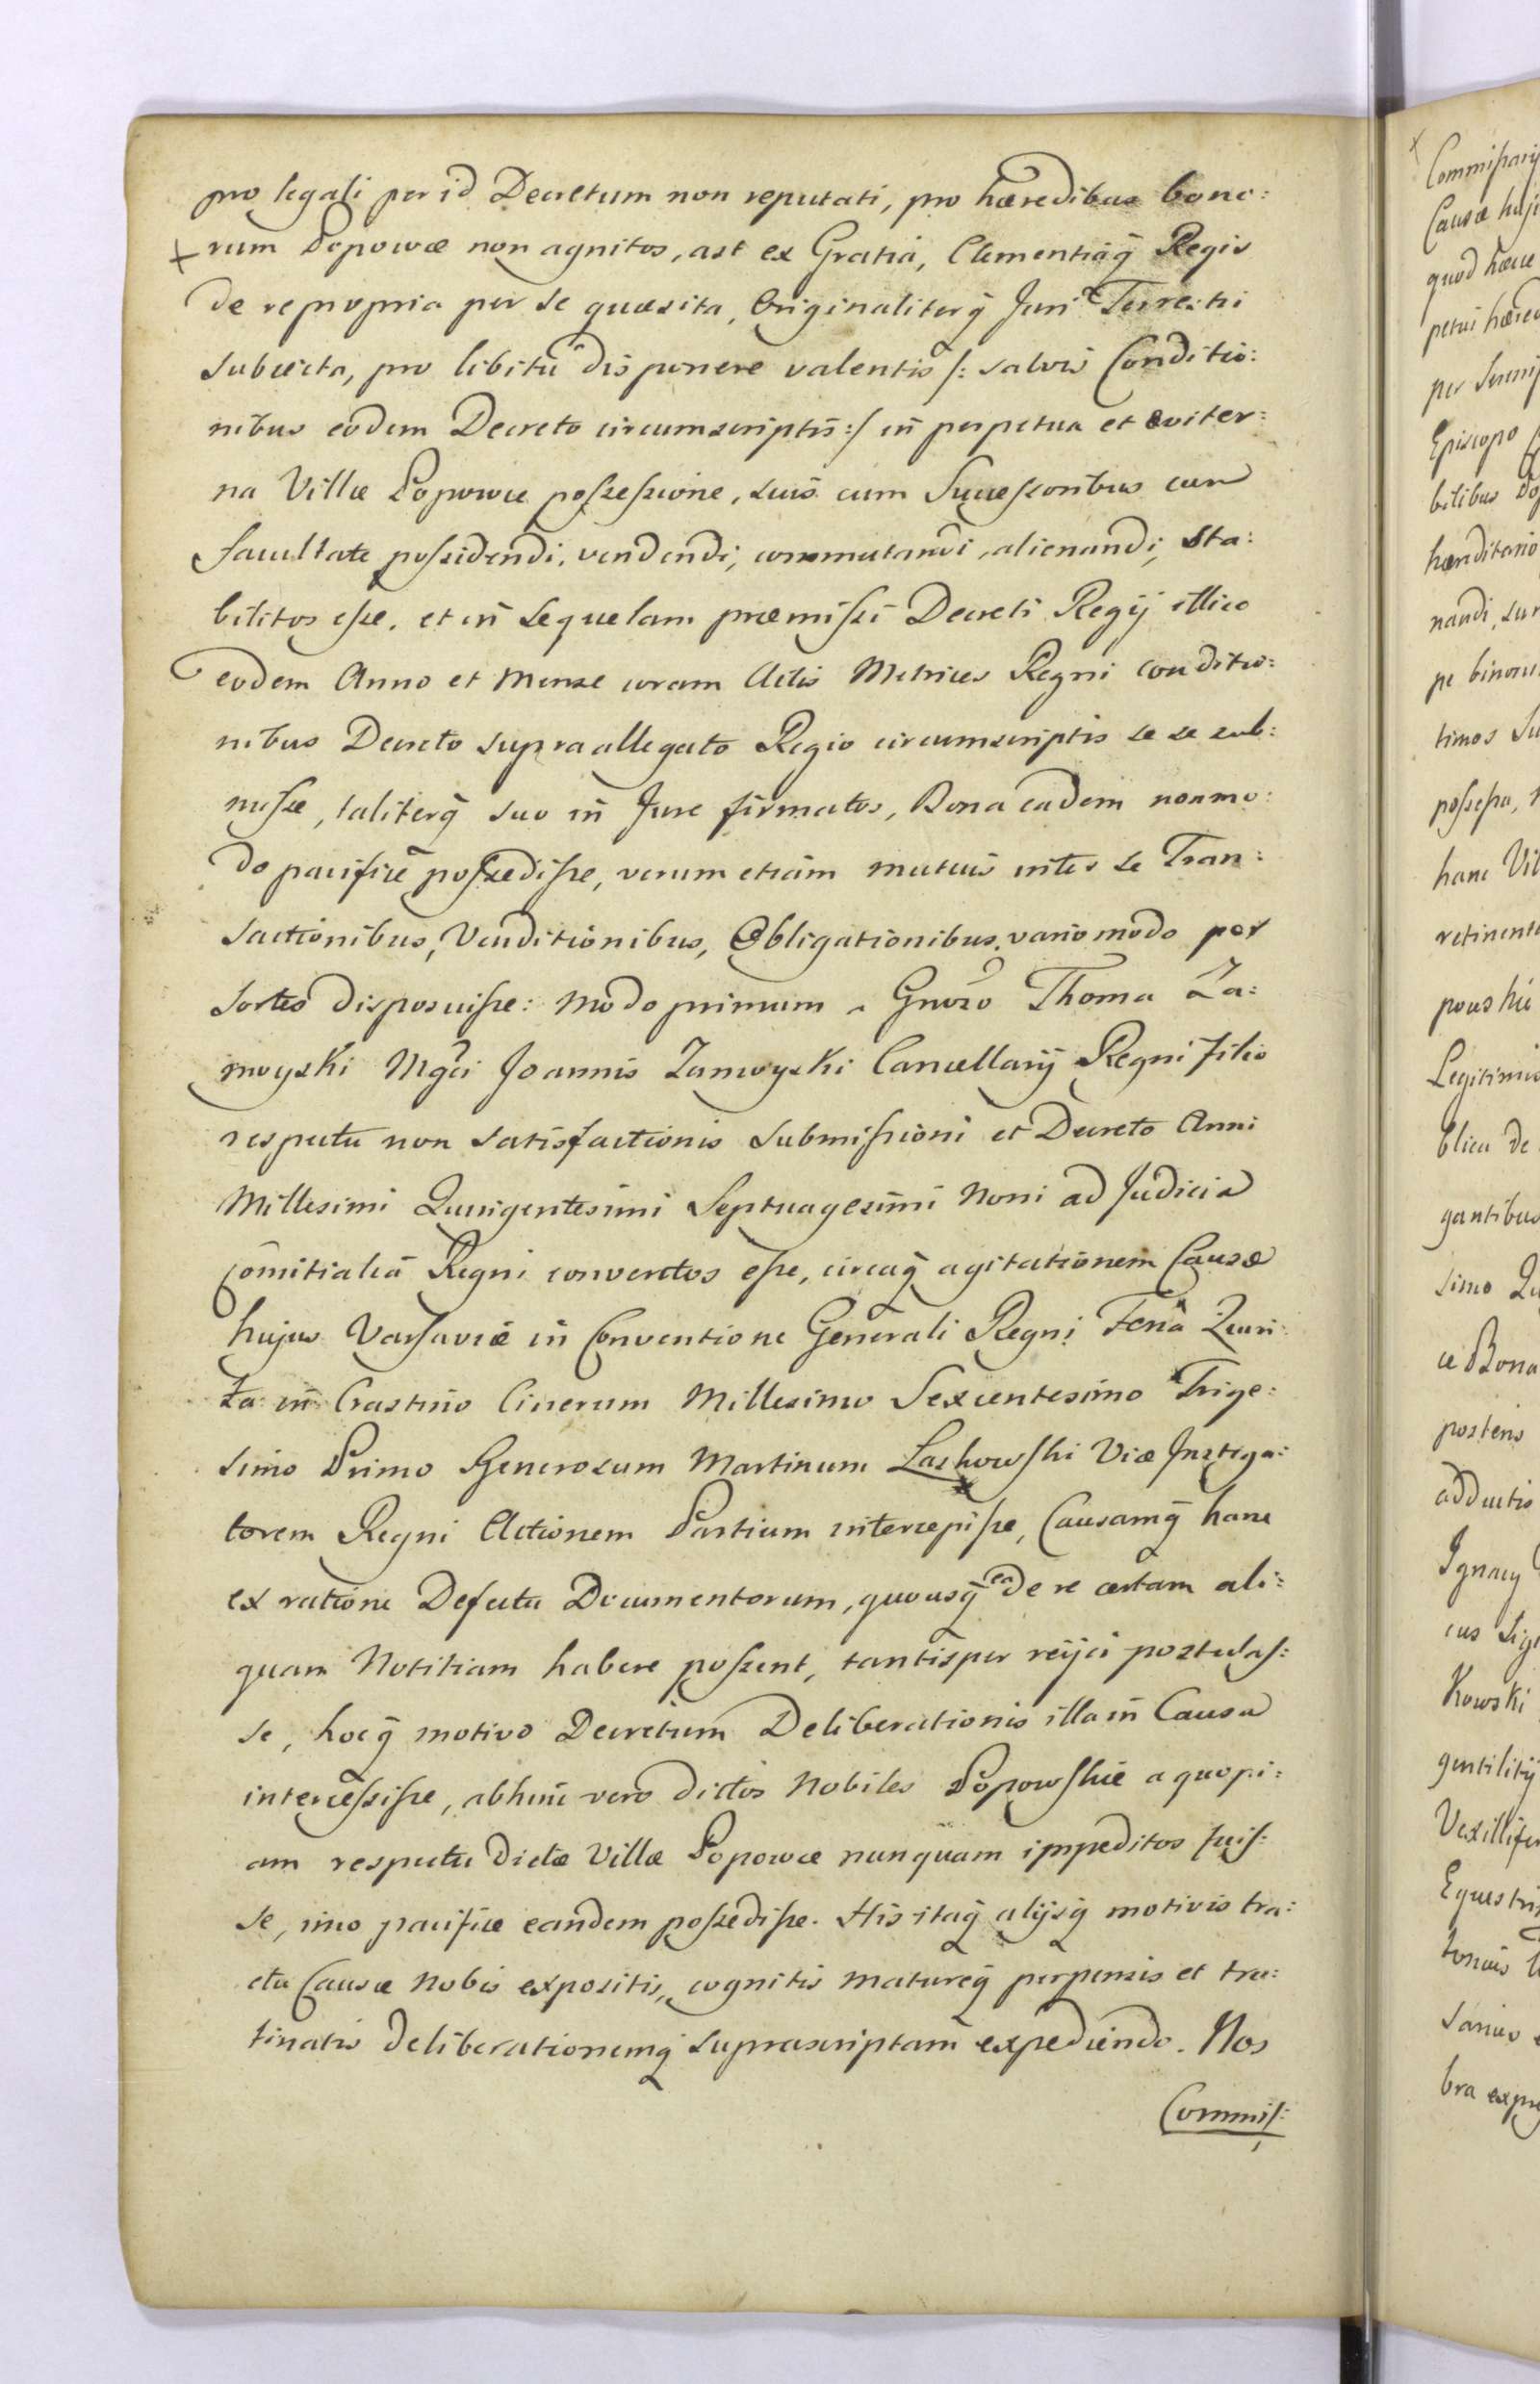 pro legali per id Decretum non reputati, pro hæredibus bono:
+ rum Popowæ non agnitos, ast ex Gratia, Clementiaq̃ Regis
de re propria per se quæsita, Originaliterq̃ Juri Terrestri
subiecta, pro libitu disponere valentis /: salvis Conditio:
nibus eodem Decreto circumscriptis :/ in perpetua et æviter:
na Villæ Popowæ poſseſsione, suis cum Succeſsoribus cum
facultate poſsidendi, vendendi, commutandi, alienandi, sta:
bilitos eſse, et in sequelam præmiſsi Decreti Regij illico
eodem Anno et Mense coram Actis Metrices Regni conditio:
nibus Decreto supraallegato Regio circumscriptis se se sub:
misſse, taliterq̃ suo in Jure firmatos, Bona eadem non mo:
do pacifice poſsediſse, verum etiam mutuis inter se Tran:
sactionibus, Venditionibus, Obligationibus, vario modo per
sortes disposuiſse: modo primum a Gnoso Thoma Za:
moyski Mgci Joannis Zamoyski Cancellarij Regni filio
respectu non satisfactionis submiſsioni et Decreto Anni
Millesimi Quingentesimi Septuagesimi Noni ad Judicia
Comitialia Regni conventos eſse, circaq̃ agitationem Causæ
hujus Varsaviæ in Conventione Generali Regni Feria Quin:
ta in Crastino Cinerum Millesimo Sexcentesimo Trige:
simo Primo Generosum Martinum Laskowski Vice Instiga:
torem Regni Actionem Partium intercepiſse, Causamq̃ hanc
ex ratione Defectu Documentorum, quousq̃ ea de re certam ali:
quam Notitiam habere poſsent, tantisper reijci postulaſ:
se, hocq̃ motivo Decretum Deliberationis illa in Causa
interceſsiſse, abhinc vero dictos Nobiles Popowskie a quopi:
am respectu dictæ Villæ Popowæ nunquam impeditos fuiſ:
se, imo pacifice eandem poſsediſse. His itaq̃ alijsq̃ motivis tra:
ctu Causæ Nobis expositis, cognitis matureq̃ perpensis et tru:
tinatis deliberationemq̃ suprascriptam expediendo. Nos
Commiſ: